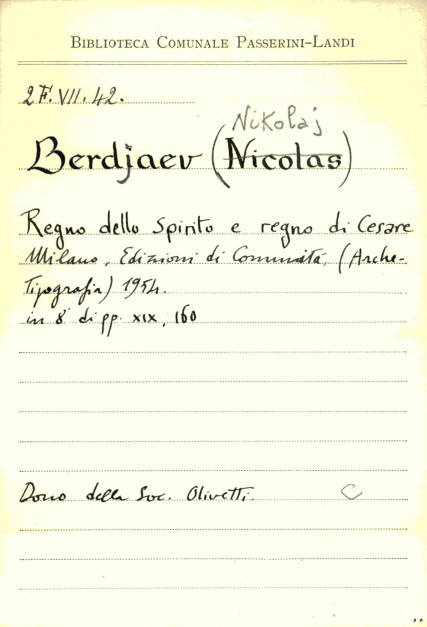 BIBLIOTECA COMUNALE PASSERINI-LANDI
2F. VII. 42.
Nikolaj
Berdjaev (Nicolas)
Regno dello Spirito e regno di Cesare
Milano, Edizioni di Comunità, (Arche-
Tipografia) 1954.
in 8° di pp. XIX, 160
Dono della Soc. Olivetti. C